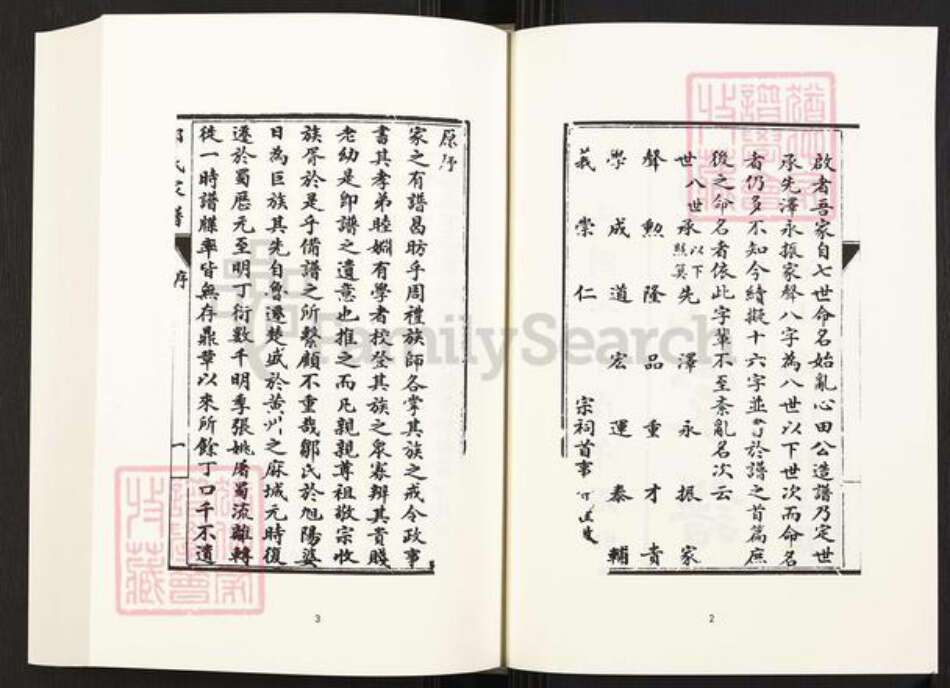 啟者吾家自七世命名始亂心田公造譜乃定世
承先澤永振家聲八字為八世以下世次而命名
者仍多不知今續擬十六字並於譜之首篇庶
後之命名者依此字輩不至紊亂名次云
世八世承以下照算先澤永振家
聲勲隆品重才貴
學成道宏運泰輔
義崇仁
宗祠首事
2
原序
家之有譜曷昉乎周禮族師各掌其族之戒令政事
書其孝弟睦婣有學者校登其族之眾寡辨其貴賤
老幼是卽譜之遺意也推之而凡親親尊祖敬宗收
族胥於是乎備譜之所繫顧不重哉鄒氏於旭陽婆
日為巨族其先自魯遷楚盛於黃州之麻城元時復
遷於蜀歷元至明丁衍數千明季張姚屠蜀流離轉
徙一時譜牒率皆無存鼎革以來所餘丁口千不遺
氏家譜
序
一
3
FamilySearch